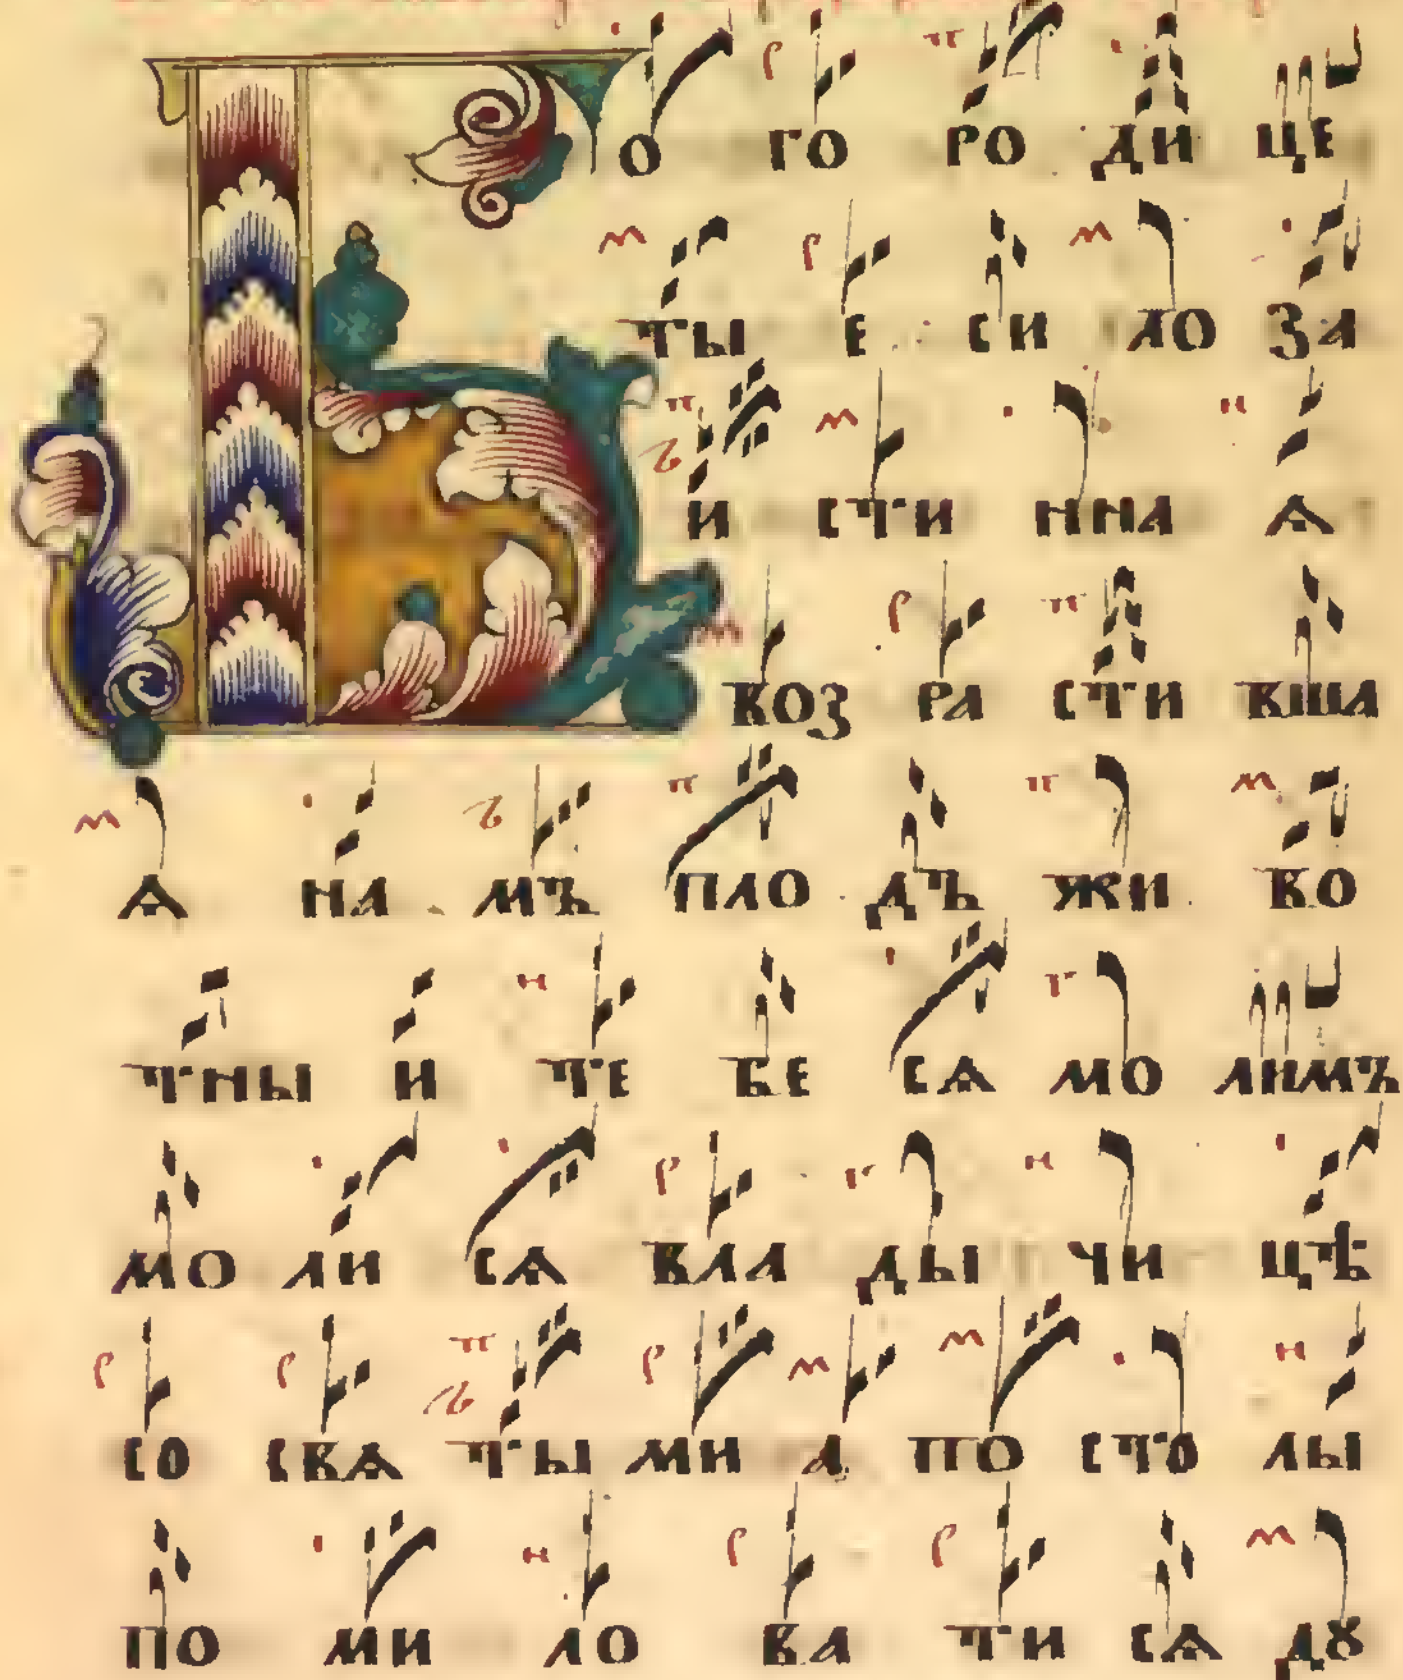 Бо го ро ди це
ты е си ло за
и сти нна ѧ
воз ра сти вша
ѧ на мъ пло дъ жи во
тны и те бе сѧ мо лимъ
мо ли сѧ вла ды чи цѣ
со свѧ ты ми а по сто лы
по ми ло ва ти сѧ дꙋ